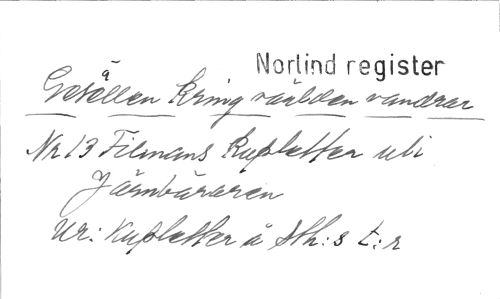 Norlind register
Gesällen kring världen vandrar
Nr 13 Filmans Kupletter uti
Järnbäraren
Ur: Kupletter å Sth:s t:r